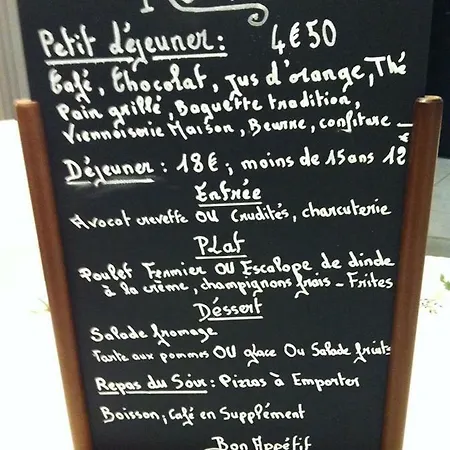 Petit déjeuner : 4€50
Café, Chocolat, Jus d'orange, Thé
Pain grillé, Baguette tradition,
Viennoiserie Maison, Beurre, confiture
Déjeuner : 18€ ; moins de 15 ans 12€
Entrée
Avocat crevette OU Crudités, charcuterie
Plat
Poulet Fermier OU Escalope de dinde
à la crème, champignons frais - Frites
Déssert
Salade fromage
Tarte aux pommes OU glace Ou Salade fruits
Repas du Soir : Pizzas à Emporter
Boisson ; Café en Supplément
Bon Appétit